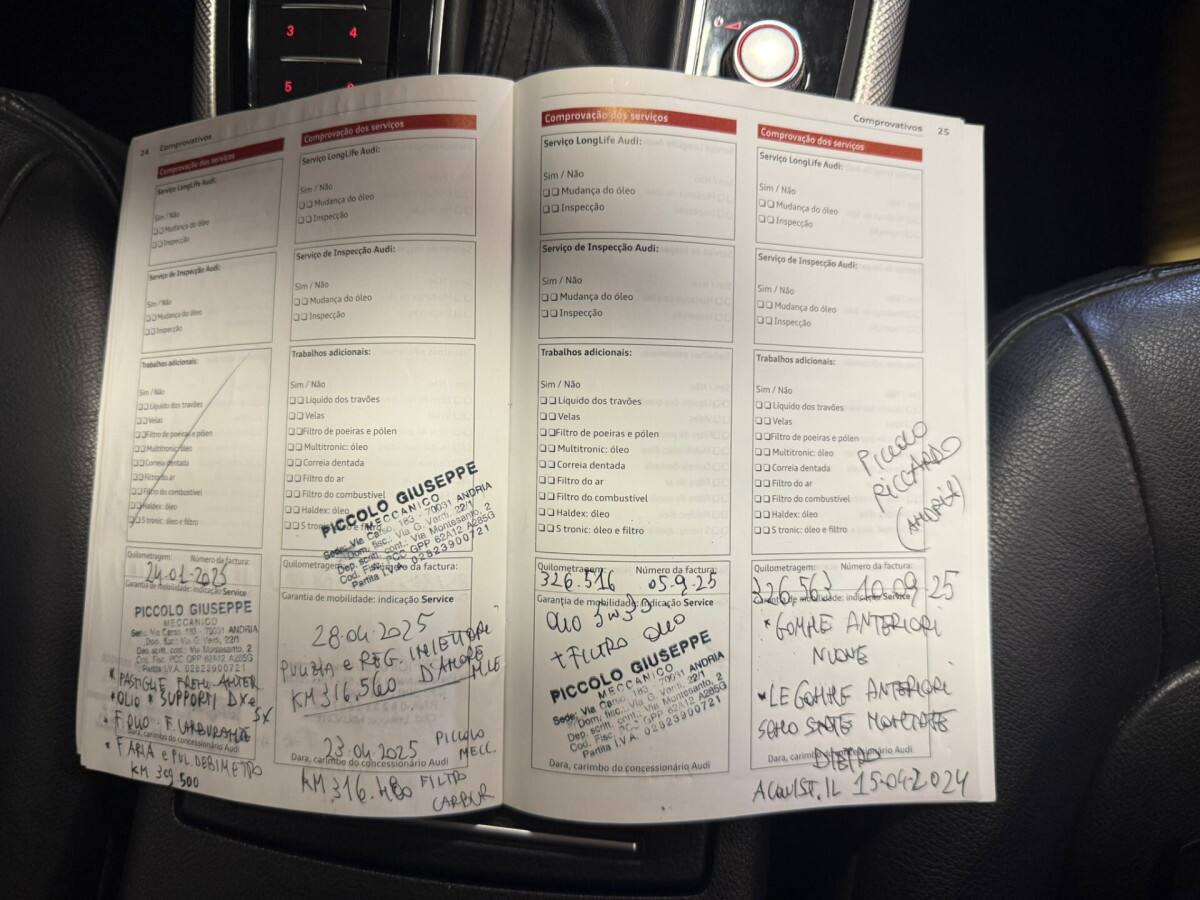 3 4
5
24 Comprovativos
Comprovação dos serviços
Serviço LongLife Audi:
Sim / Não
Mudança do óleo
Inspecção
Serviço de Inspecção Audi:
Sim / Não
Mudança do óleo
Inspecção
Trabalhos adicionais:
Sim / Não
Líquido dos travões
Velas
Filtro de poeiras e pólen
Multitronic: óleo
Correia dentada
Filtro do ar
Filtro do combustível
Haldex: óleo
S tronic: óleo e filtro
Quilometragem: Número da factura:
24-01-2025
Garantia de mobilidade: indicação Service
PICCOLO GIUSEPPE
MECCANICO
Sede: Via Carso, 183 - 70031 ANDRIA
Dom. fisc.: Via G. Verdi, 22/1
Dep. scritt. cont.: Via Montesanto, 2
Cod. Fisc. PCC GPP 62A12 A285G
Partita I.V.A. 02823900721
* PASTIGLIE FRENI ANTER
* OLIO * SUPPORTI DX e SX
* F. OLIO - F.
Dara, carimbo do concessionário Audi
* F ARIA e PUL. DEBIMETRO
KM 309 500
Comprovação dos serviços
Serviço LongLife Audi:
Sim / Não
Mudança do óleo
Inspecção
Serviço de Inspecção Audi:
Sim / Não
Mudança do óleo
Inspecção
Trabalhos adicionais:
Sim / Não
Líquido dos travões
Velas
Filtro de poeiras e pólen
Multitronic: óleo
Correia dentada
Filtro do ar
Filtro do combustível
Haldex: óleo
S tronic: óleo e filtro
PICCOLO GIUSEPPE
MECCANICO
Sede: Via Carso, 183 - 70031 ANDRIA
Dom. fisc.: Via G. Verdi, 22/1
Dep. scritt. cont.: Via Montesanto, 2
Cod. Fisc. PCC GPP 62A12 A285G
Partita I.V.A. 02823900721
Quilometragem: Número da factura:
Garantia de mobilidade: indicação Service
28-04-2025
PULIZIA e REG. INIETTORI
KM 316.560 D'AMORE
23-04-2025 PICCOLO
MECC.
Dara, carimbo do concessionário Audi
KM 316.480 FILTRO
CARBUR
Comprovativos 25
Comprovação dos serviços
Serviço LongLife Audi:
Sim / Não
Mudança do óleo
Inspecção
Serviço de Inspecção Audi:
Sim / Não
Mudança do óleo
Inspecção
Trabalhos adicionais:
Sim / Não
Líquido dos travões
Velas
Filtro de poeiras e pólen
Multitronic: óleo
Correia dentada
Filtro do ar
Filtro do combustível
Haldex: óleo
S tronic: óleo e filtro
Quilometragem: Número da factura:
326.516 05-9-25
Garantia de mobilidade: indicação Service
OLIO 5W30
+ FILTRO OLIO
PICCOLO GIUSEPPE
MECCANICO
Sede: Via Carso, 183 - 70031 ANDRIA
Dom. fisc.: Via G. Verdi, 22/1
Dep. scritt. cont.: Via Montesanto, 2
Cod. Fisc. PCC GPP 62A12 A285G
Partita I.V.A. 02823900721
Dara, carimbo do concessionário Audi
Comprovação dos serviços
Serviço LongLife Audi:
Sim / Não
Mudança do óleo
Inspecção
Serviço de Inspecção Audi:
Sim / Não
Mudança do óleo
Inspecção
Trabalhos adicionais:
Sim / Não
Líquido dos travões
Velas
Filtro de poeiras e pólen
Multitronic: óleo
Correia dentada
Filtro do ar
Filtro do combustível
Haldex: óleo
S tronic: óleo e filtro
PICCOLO
RICCARDO
(ANDRIA)
Quilometragem: Número da factura:
326.563 10-09-25
Garantia de mobilidade: indicação Service
* GOMME ANTERIORI
NUOVE
* LE GOMME ANTERIORI
SONO STATE MONTATE
DIETRO
Dara, carimbo do concessionário Audi
ACQUIST. IL 15-04-2024